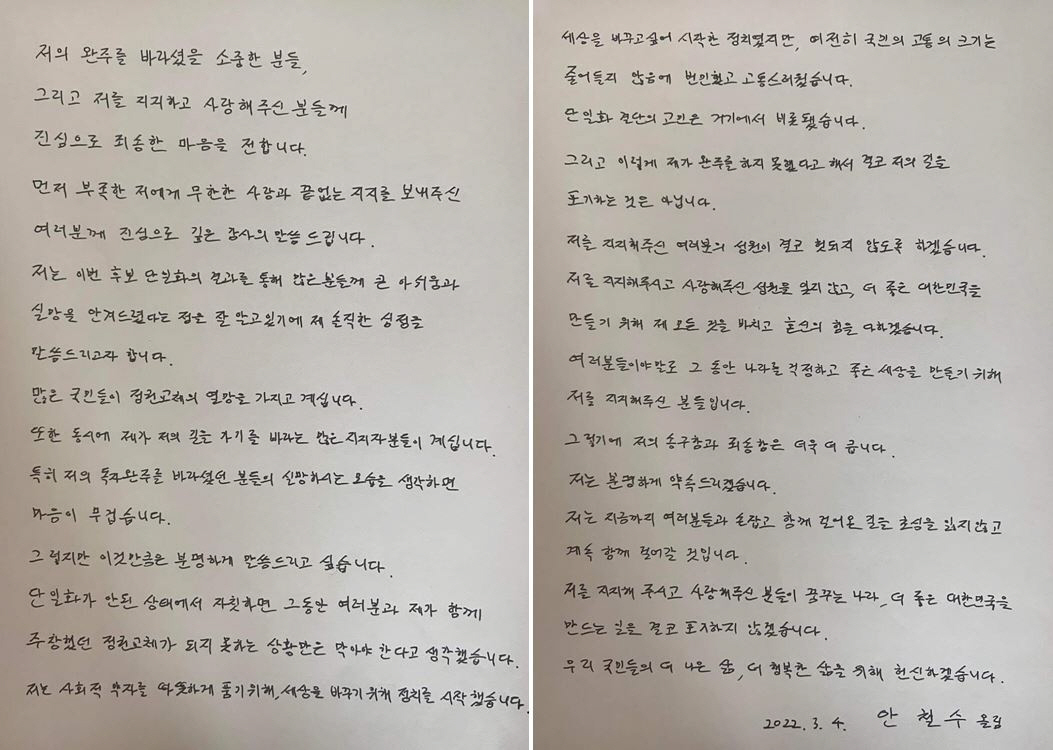 저의 완주를 바라셨을 소중한 분들,
그리고 저를 지지하고 사랑해주신 분들께
진심으로 죄송한 마음을 전합니다.
먼저 부족한 저에게 무한한 사랑과 끝없는 지지를 보내주신
여러분께 진심으로 깊은 감사의 말씀 드립니다.
저는 이번 후보 단일화의 결과를 통해 많은분들께 큰 아쉬움과
실망을 안겨드렸다는 점을 잘 알고있기에 제 솔직한 심정을
말씀드리고자 합니다.
많은 국민들이 정권교체의 열망을 가지고 계십니다.
또한 동시에 제가 저의 길을 가기를 바라는 많은지지자분들이 계십니다.
특히 저의 독자완주를 바라셨던 분들의 실망하시는 모습을 생각하면
마음이 무겁습니다.
그렇지만 이것만큼은 분명하게 말씀드리고 싶습니다.
단일화가 안된 상태에서 자칫하면 그동안 여러분과 제가 함께
주장했던 정권교체가 되지 못하는 상황만은 막아야 한다고 생각했습니다.
저는 사회적 약자를 따뜻하게 품기위해, 세상을 바꾸기위해 정치를 시작했습니다.
세상을 바꾸고싶어 시작한 정치였지만, 여전히 국민의 고통의 크기는
줄어들지 않음에 번민했고 고통스러웠습니다.
단일화 결단의 고민은 거기에서 비롯됐습니다.
그리고 이렇게 제가 완주를 하지 못했다고 해서 결코 저의 길을
포기하는 것은 아닙니다.
저를 지지해주신 여러분의 성원이 결코 헛되지 않도록 하겠습니다.
저를 지지해주시고 사랑해주신 성원을 잊지 않고, 더 좋은 대한민국을
만들기 위해 제 모든 것을 바치고 혼신의 힘을 다하겠습니다.
여러분들이야말로 그 동안 나라를 걱정하고 좋은 세상을 만들기 위해
저를 지지해주신 분들입니다.
그렇기에 저의 송구함과 죄송함은 더욱 더 큽니다.
저는 분명하게 약속드리겠습니다.
저는 지금까지 여러분들과 손잡고 함께 걸어온 길을 초심을 잃지않고
계속 함께 걸어갈 것입니다.
저를 지지해 주시고 사랑해주신 분들이 꿈꾸는 나라, 더 좋은 대한민국을
만드는 일을 결코 포기하지 않겠습니다.
우리 국민들의 더 나은 삶, 더 행복한 삶을 위해 헌신하겠습니다.
2022. 3. 4. 안 철 수 올림